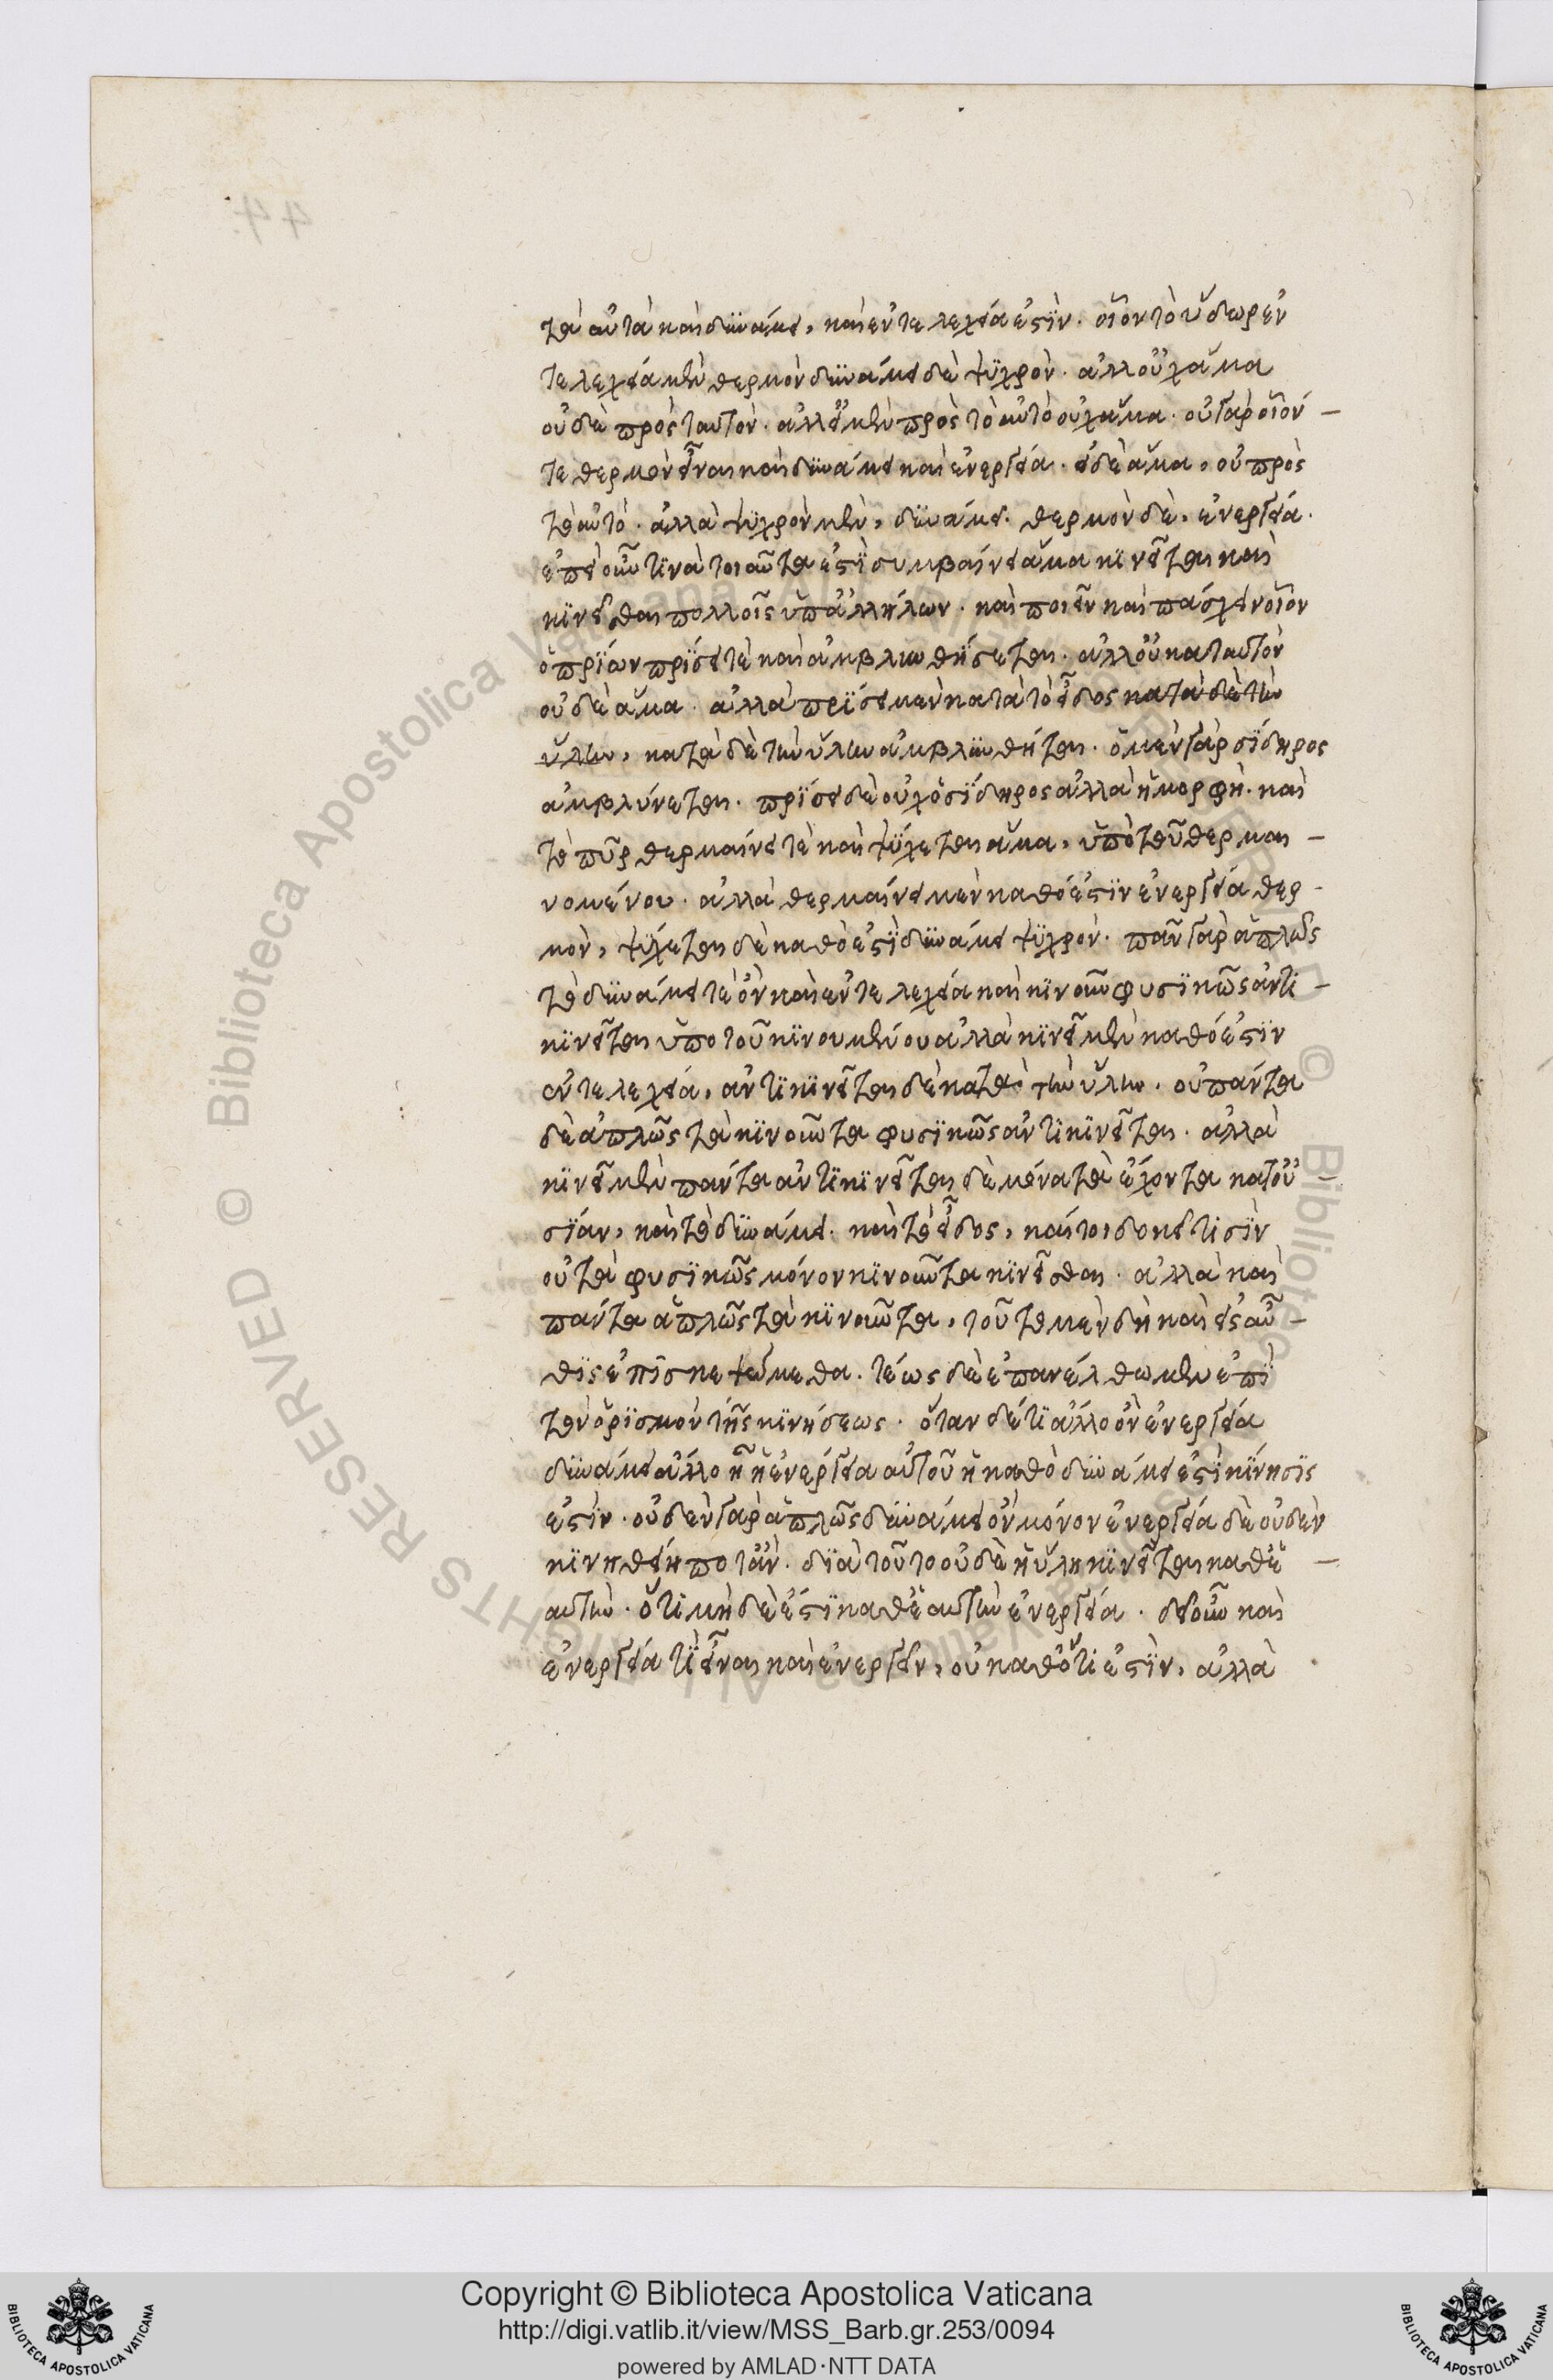 τὰ αὐτὰ καὶ δυνάμει, καὶ ἐντελεχείᾳ ἐστὶν. οἷον τὸ ὕδωρ ἐν
τελεχείᾳ μὲν θερμὸν δυνάμει δὲ ψυχρὸν. ἀλλ' οὐχ ἅμα
οὐδὲ πρὸς ταυτὸν. ἀλλ' εἰ μὲν πρὸς τὸ αὐτὸ οὐχ ἅμα. οὐ γὰρ οἷόν -
τε θερμὸν εἶναι καὶ δυνάμει καὶ ἐνεργείᾳ. εἰ δὲ ἅμα, οὐ πρὸς
τὸ αὐτὸ. ἀλλὰ ψυχρὸν μὲν, δυνάμει. θερμὸν δὲ, ἐνεργείᾳ.
ἐπεὶ οὖν τινὰ τοιαῦτα ἐστὶ συμβαίνει ἅμα κινεῖται καὶ
κινεῖσθαι πολλοῖς ὑπ' ἀλλήλων. καὶ ποιεῖν καὶ πάσχειν οἷον
ὁ πρίων πρίσει τὲ καὶ ἀμβλυνθήσεται. ἀλλ' οὐ κατ' αυτὸν
οὐδὲ ἅμα. ἀλλὰ πρίσει μὲν κατὰ τὸ εἶδος κατὰ δὲ τὴν
ὕλην, κατὰ δὲ τὴν ὕλην ἀμβλυνθήται. ὁ μὲν γὰρ σίδηρος
ἀμβλύνεται. πρίσει δὲ οὐχ ὁ σίδηρος ἀλλὰ ἡ μορφὴ. καὶ
τὸ πῦρ θερμαίνει τὲ καὶ ψύχεται ἅμα, ὑπὸ τοῦ θερμαι -
νομένου. ἀλλὰ θερμαίνει μὲν καθό ἐστιν ἐνεργείᾳ θερ -
μὸν, ψύχεται δὲ καθὸ ἐστὶ δυνάμει ψυχρὸν. πᾶν γὰρ ἁπλῶς
τὸ δυνάμει τὲ ὂν καὶ ἐντελεχείᾳ καὶ κινοῦν φυσικῶς ἀντι -
κινεῖται ὑπο τοῦ κινουμένου ἀλλὰ κινεῖ μὲν καθό ἐστὶν
ἐντελεχείᾳ, ἀντικινεῖται δὲ κατὰ τὴν ὕλην. οὐ πάντα
δὲ ἁπλῶς τὰ κινοῦντα φυσικῶς ἀντικινεῖται. ἀλλὰ
κινεῖ μὲν πάντα ἀντικινεῖται δὲ μόνα τὰ ἔχοντα κατ' οὐ -
σίαν, καὶ τὸ δυνάμει. καὶ τὸ εἶδος, καίτοι δοκεῖ τισὶν
οὐ τὰ φυσικῶς μόνον κινοῦντα κινεῖσθαι. ἀλλὰ καὶ
πάντα ἁπλῶς τὰ κινοῦντα, τοῦτο μὲν δὴ καὶ εἰς αὖ -
θις ἐπισκεψώμεθα. τέως δὲ ἐπανέλθωμεν ἐπὶ
τὸν ὁρισμὸν τῆς κινήσεως. ὅταν δέ τι ἄλλο ὂν ἐνεργείᾳ
δυνάμει ἄλλο ἦ ἡ ἐνέργεια αὐτοῦ ἡ καθὸ δυνάμει ἐστὶ κίνησις
ἐστίν. οὐδὲν γὰρ ἁπλῶς δυνάμει ὂν μόνον ἐνεργείᾳ δὲ οὐδὲν
κινηθείη ποτ' ἂν. διὰ τοῦτο οὐδὲ ἡ ὕλη κινεῖται καθ' ἑ -
αυτὴν. ὅτι μὴ δὲ ἐστὶ καθ' ἑαυτὴν ἐνεργείᾳ. δεῖ οὖν καὶ
ἐνεργείᾳ τὶ εἶναι καὶ ἐνεργεῖν, οὐ καθ' ὅτι ἐστὶν, ἀλλὰ